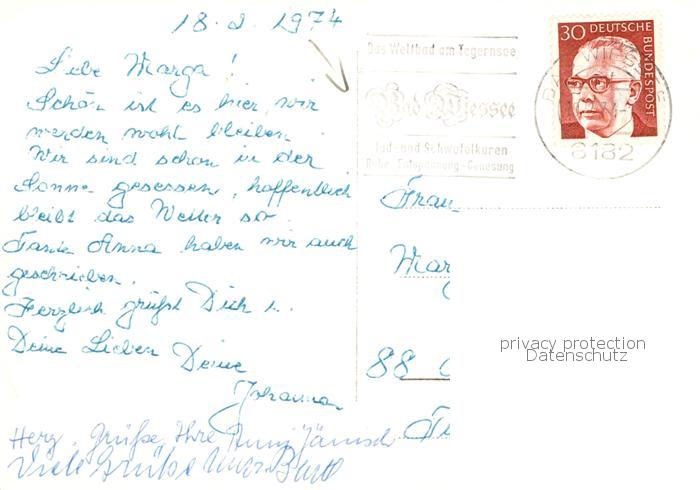 18.2.1974
Liebe Marga!
Schön ist es hier, wir
werden wohl bleiben.
Wir sind schon in der
Sonne gesessen, hoffentlich
bleibt das Wetter so.
Tante Anna haben wir auch
geschrieben.
Herzlich grüßt Dich u.
Deine Lieben Deine
Johanna
Herz. Grüße Ihre Anni Jänisch
Viele Grüße
Das Weltbad am Tegernsee
Bad Wiessee
Jod- und Schwefelkuren
Ruhe-Entspannung-Genesung
30 DEUTSCHE BUNDESPOST
BAD WIESSEE
8182
Frau
Marg
88
privacy protection
Datenschutz